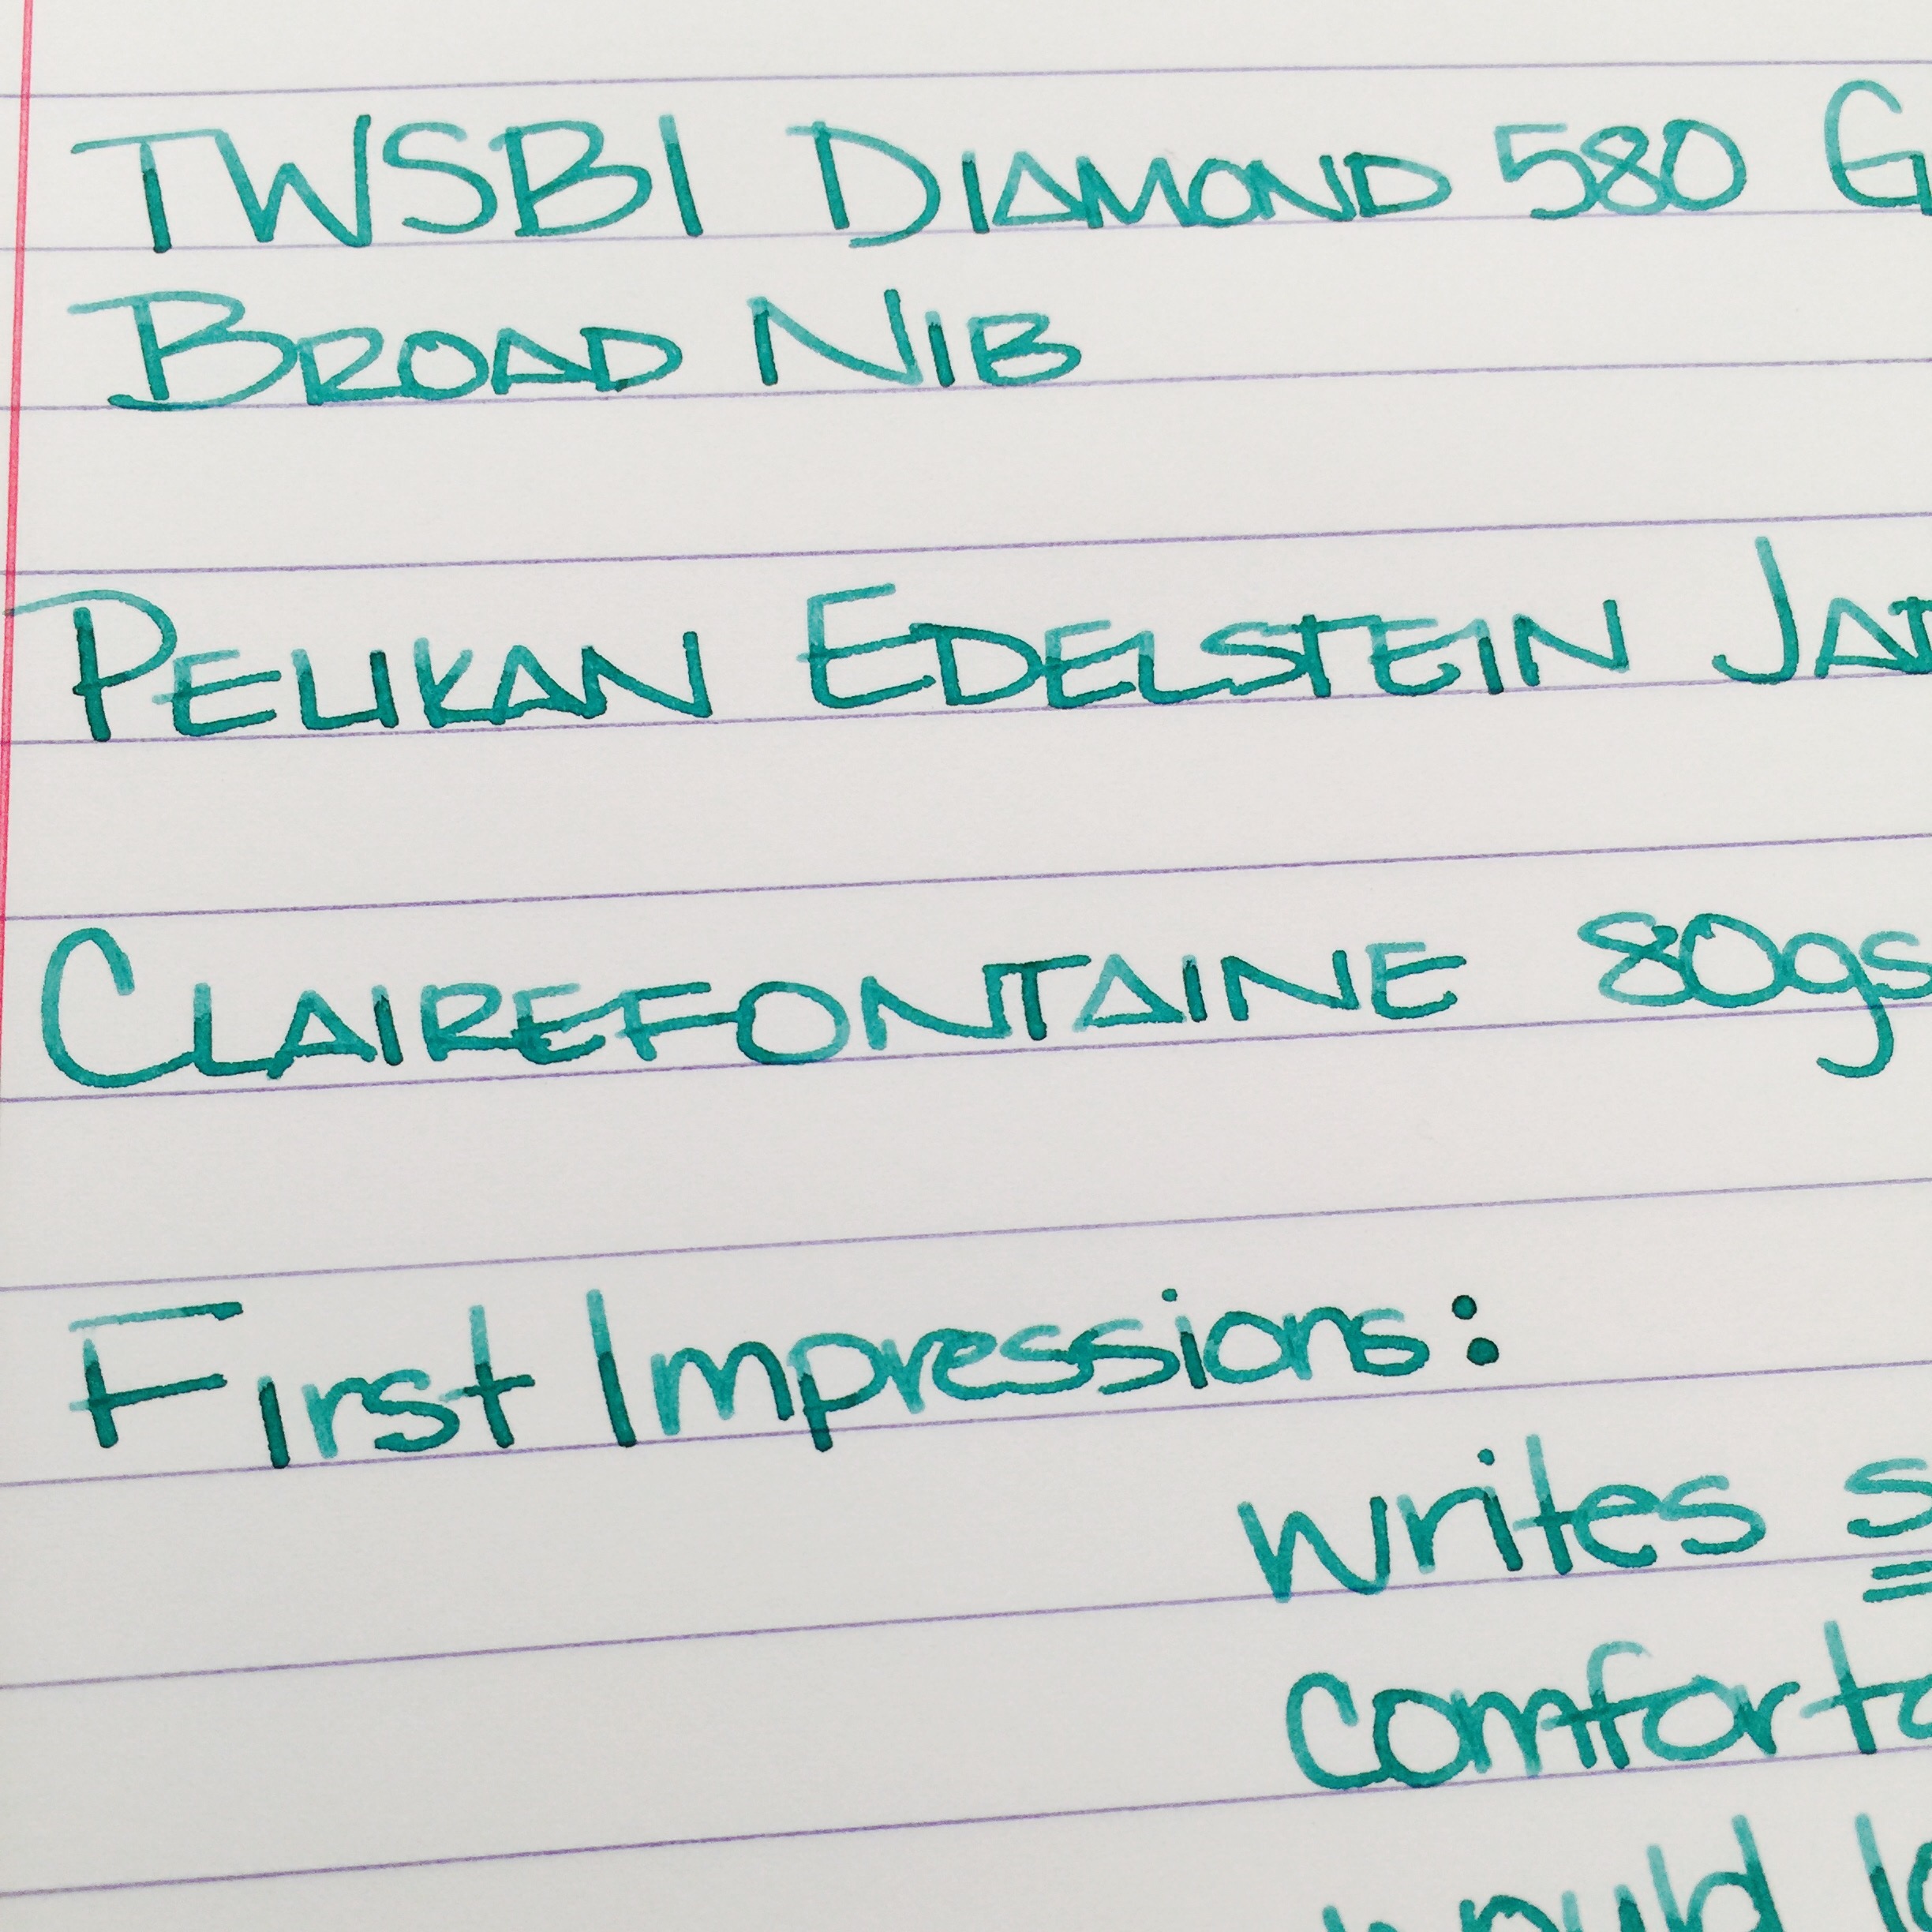 TWSBI DIAMOND 580 G
BROAD NIB
PELIKAN EDELSTEIN
CLAIREFONTAINE 80gs
First Impressions:
writes s
comforta
would